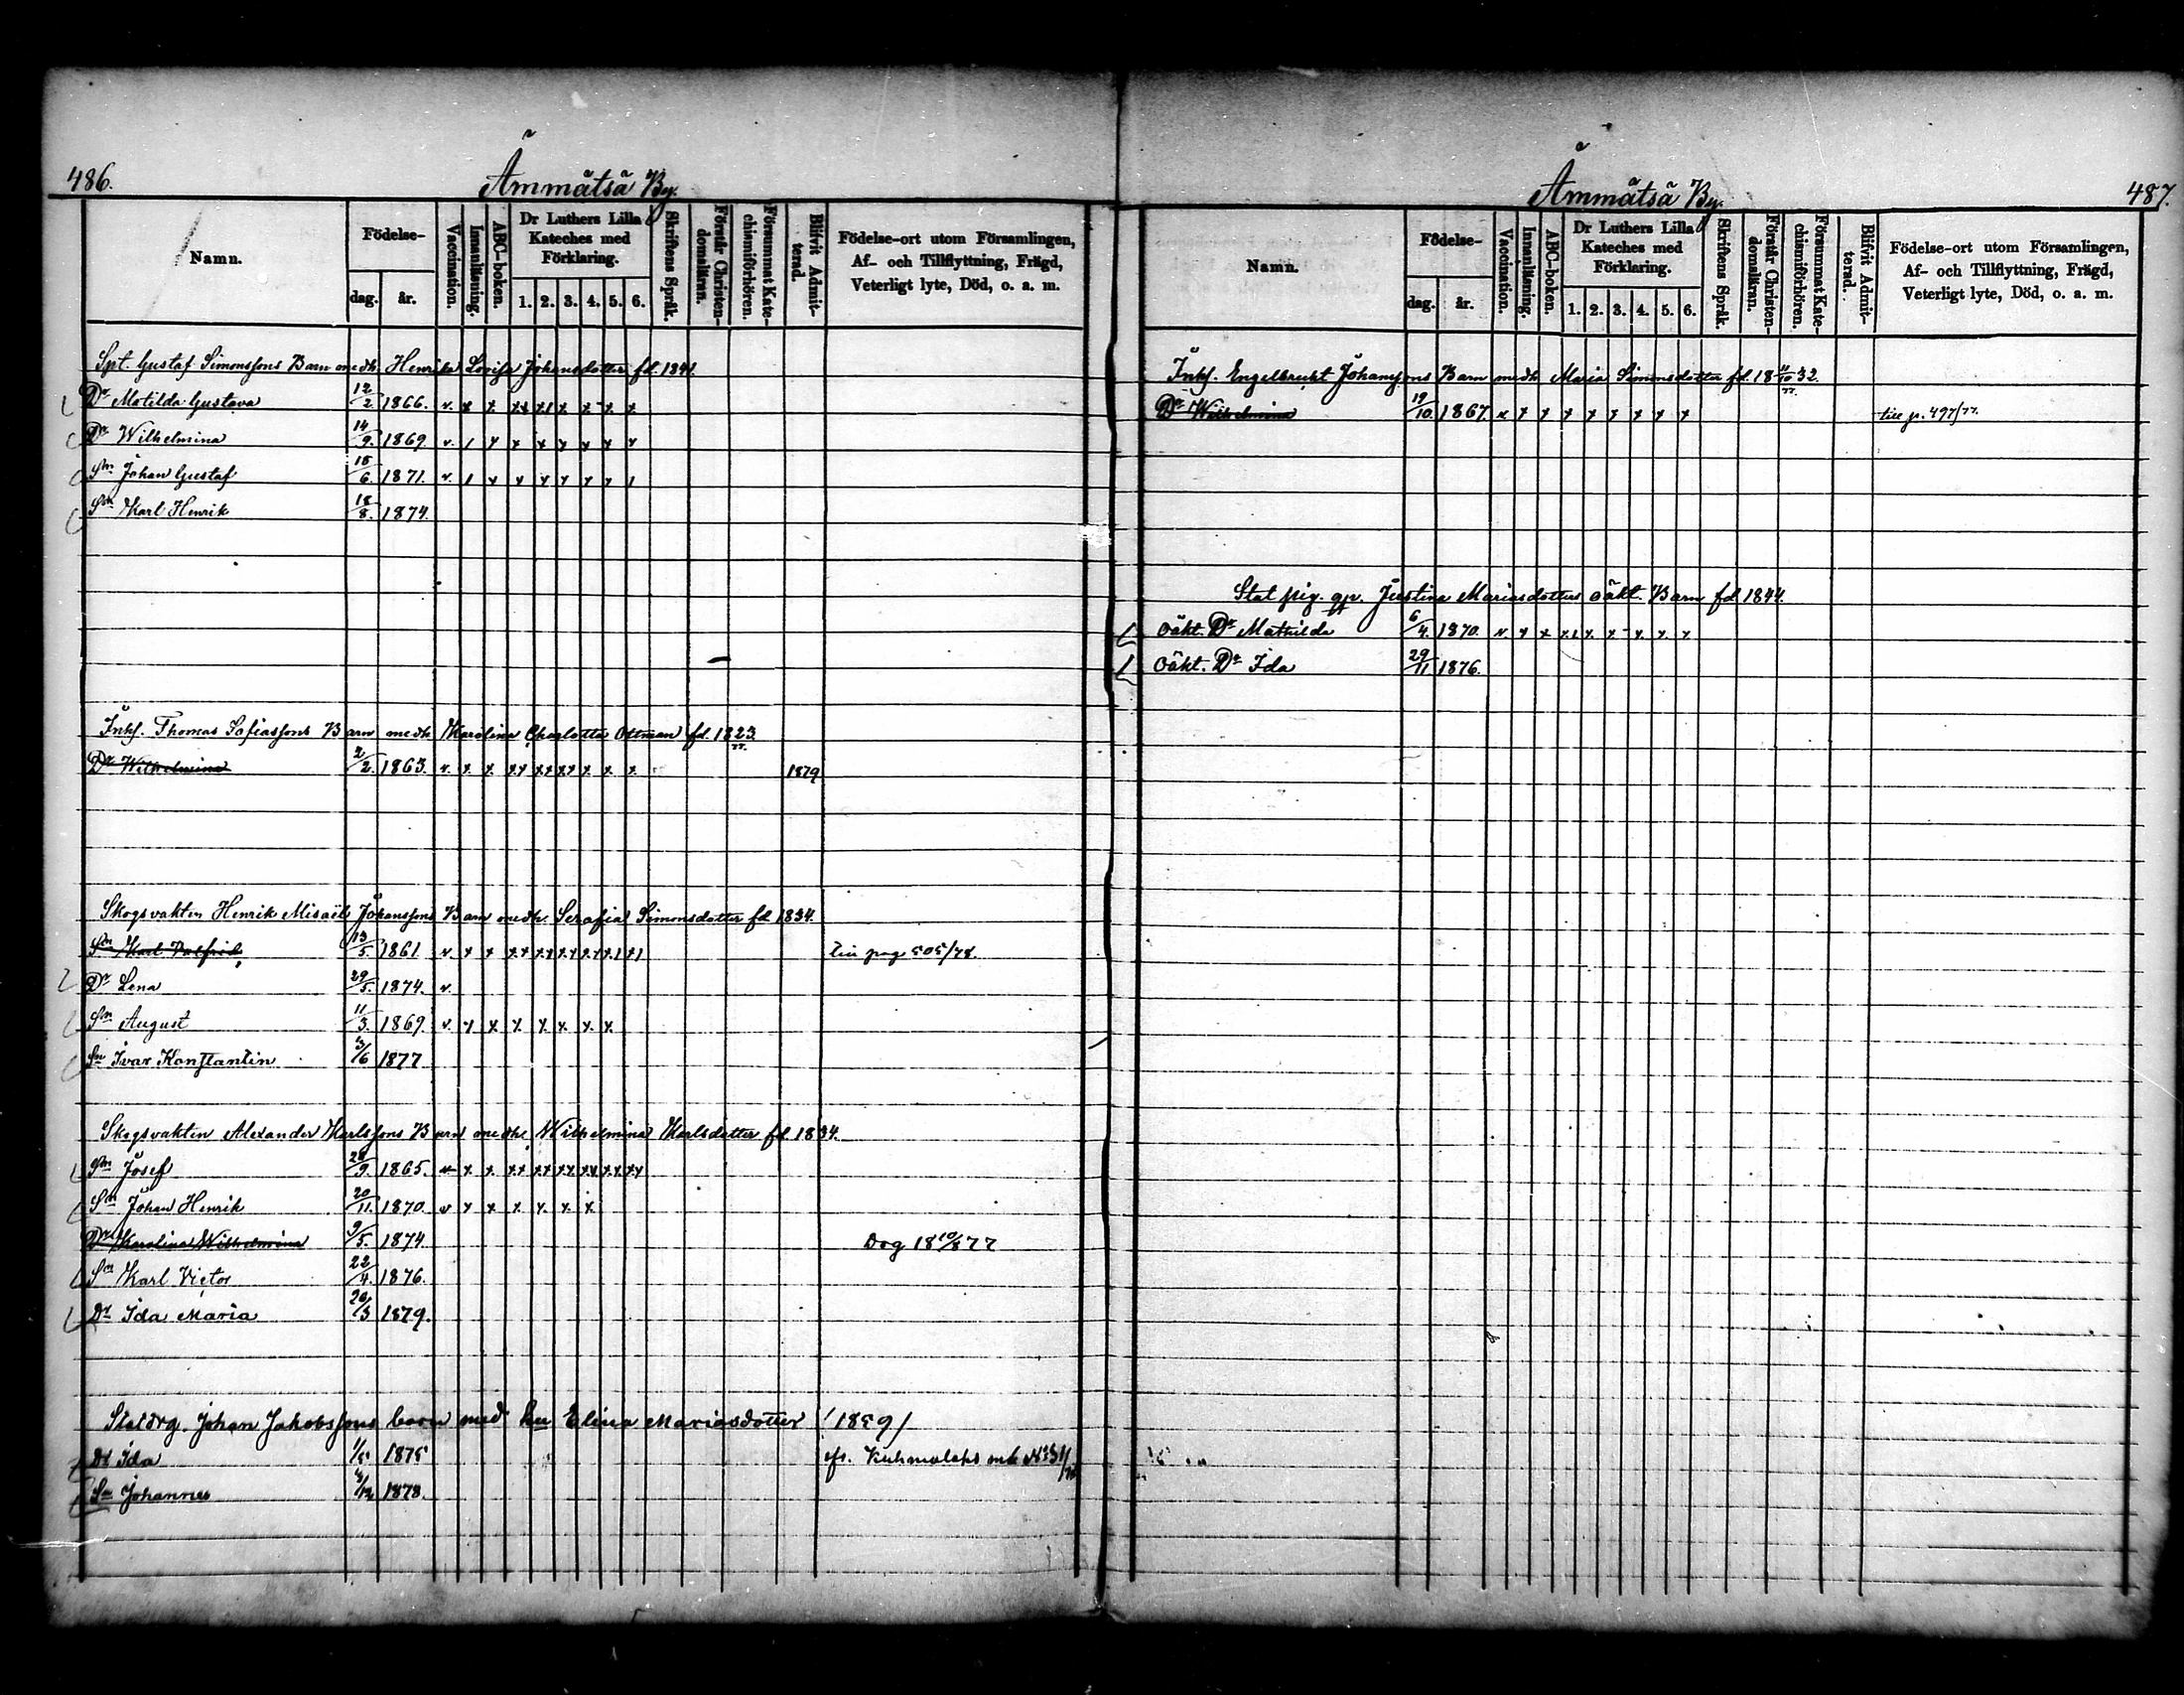 486.
Ämmätsä By.
Namn.
Födelse-
dag.
år.
Vaccination.
Innanläsning.
ABC-boken.
Dr Luthers Lilla Kateches med Förklaring.
1. 2. 3. 4. 5. 6.
Skriftens Språk.
Förstår Christen-domsläran.
Försummat Kate-chismiförhören.
Blifvit Admit-terad.
Födelse-ort utom Församlingen,
Af- och Tillflyttning, Frägd,
Veterligt lyte, Död, o. a. m.
Spt. Gustaf Simonssons Barn medh. Henrika Lovisa Johansdotter fd. 1841.
Dr Matilda Gustava 12/2. 1866. v. x x xx x1 x x x x
Dr Wilhelmina 14/9. 1869. v. 1 x x x x x x x
Sn Johan Gustaf 15/6. 1871. v. 1 x x x x x x 1
Sn Karl Henrik 18/8. 1874.
Inhs. Thomas Sofiassons Barn medh Karolina Charlotta Ottman fd. 1823.
Dr Wilhelmina 2/2. 1863. v. x x xx xx xx x x x 1879
Skogsvakten Henrik Misaël Johanssons Barn medh. Serafia Simonsdotter fd 1834.
Sn Karl Valfrid 13/5. 1861 v x x xx xx xx xx x1 x1 till pag 505/78.
Dr Lena 29/5. 1874. v.
Sn August 11/3. 1869. v. x x x x x x x
Sn Ivar Konstantin 3/6 1877
Skogsvakten Alexander Karlssons Barn medh. Wilhelmina Karlsdotter fd 1834.
Sn Josef 28/9. 1865. v x x xx xx xx xx xx xx
Sn Johan Henrik 20/11. 1870. v x x x x x x
Dr Karolina Wilhelmina 9/5. 1874. Dog 18 10/8 77
Sn Karl Victor 22/4. 1876.
Dr Ida Maria 20/3 1879.
Statdrg. Johan Jakobssons barn med hu Elina Mariasdotter /1859/
Dr Ida 1/5 1875
Sn Johannes 1878.
Ämmätsä By.
487.
Namn.
Födelse-
dag.
år.
Vaccination.
Innanläsning.
ABC-boken.
Dr Luthers Lilla Kateches med Förklaring.
1. 2. 3. 4. 5. 6.
Skriftens Språk.
Förstår Christen-domsläran.
Försummat Kate-chismiförhören.
Blifvit Admit-terad.
Födelse-ort utom Församlingen,
Af- och Tillflyttning, Frägd,
Veterligt lyte, Död, o. a. m.
Inhs. Engelbrekt Johanssons Barn medh Maria Simonsdotter fd. 18 11/10 32.
Dr Wilhelmina 19/10. 1867. v x x x x x x x x till p. 497/77.
Stat pig. gp. Justina Mariasdotters oäkt. Barn fd 1844.
oäkt. Dr Mathilda 6/4. 1870. v. x x x1 x x x x x
oäkt. Dr Ida 29/11. 1876.